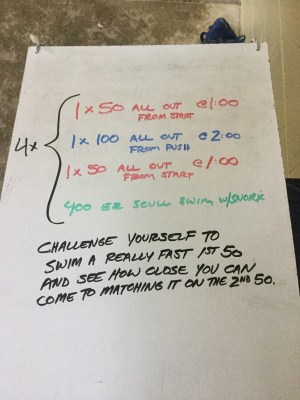 1 x 50 ALL OUT @ 1:00
FROM START
4x
1 x 100 ALL OUT @ 2:00
FROM PUSH
1 x 50 ALL OUT @ 1:00
FROM START
400 EZ SCULL SWIM w/
CHALLENGE YOURSELF TO
SWIM A REALLY FAST 1ST 50
AND SEE HOW CLOSE YOU CAN
COME TO MATCHING IT ON THE 2ND 50.